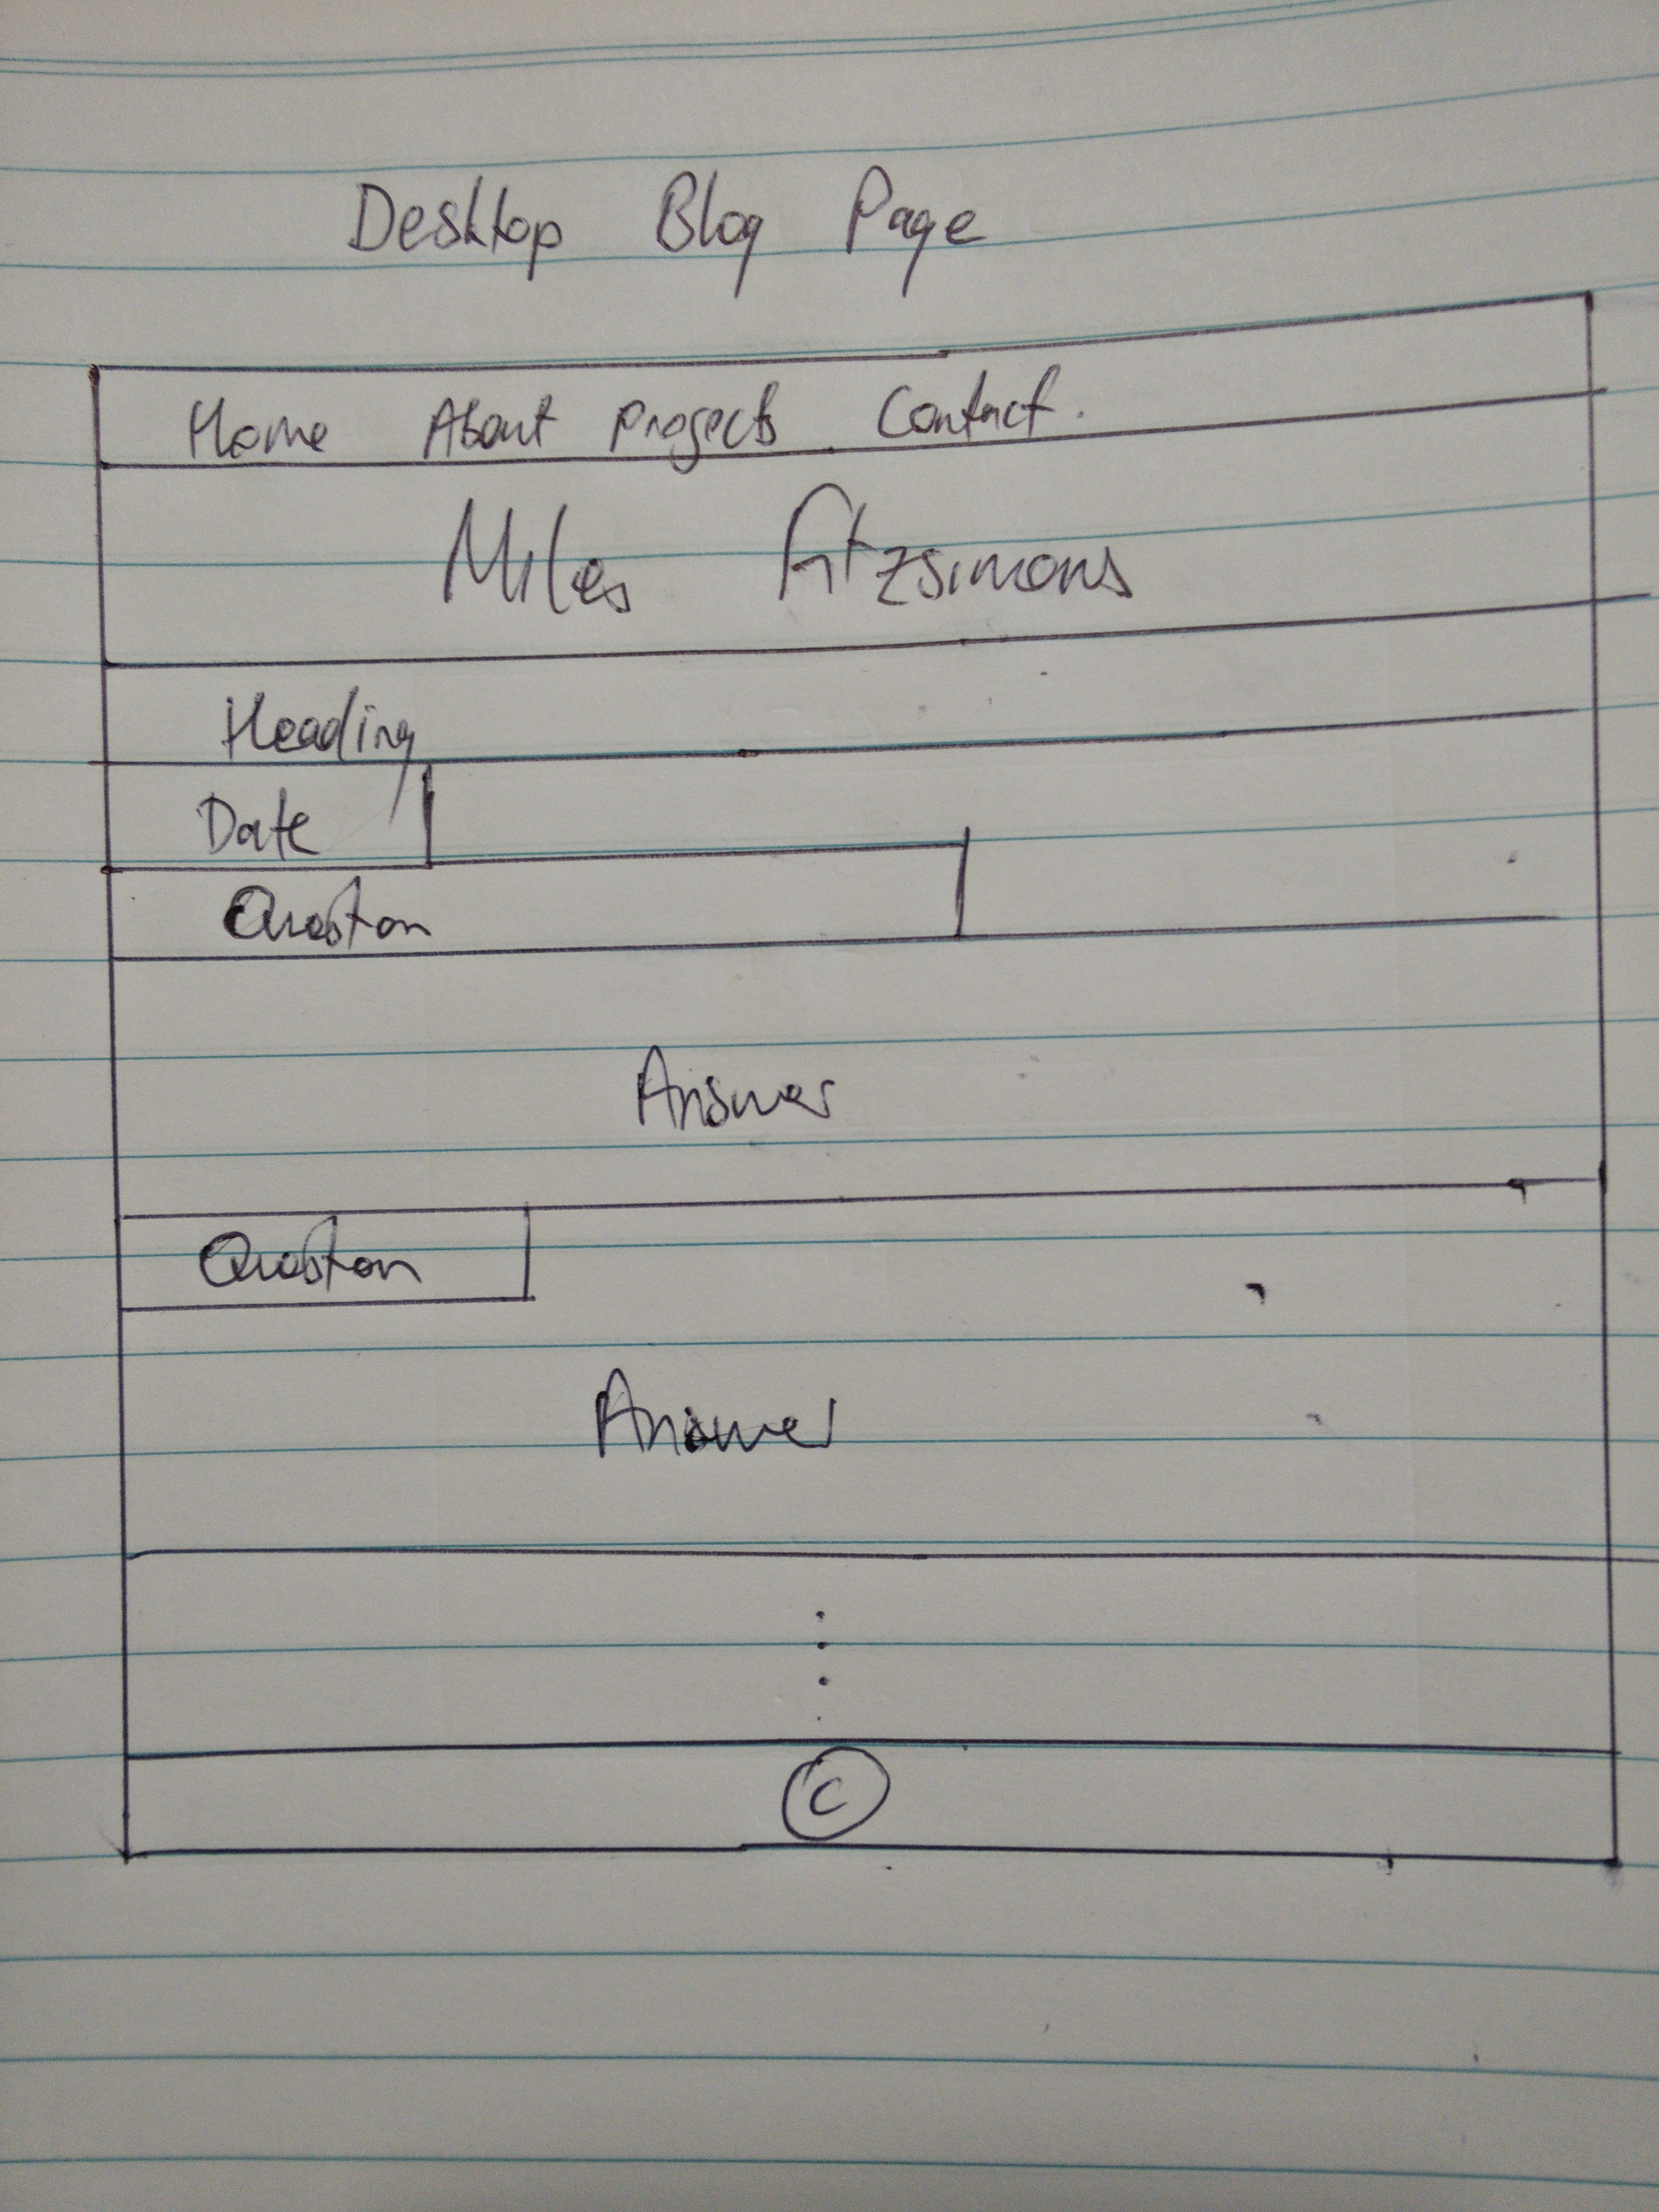 Desktop Blog Page
Home About Projects Contact.
Miles Fitzsimons
Heading
Date
Question
Answer
Question
Answer
©